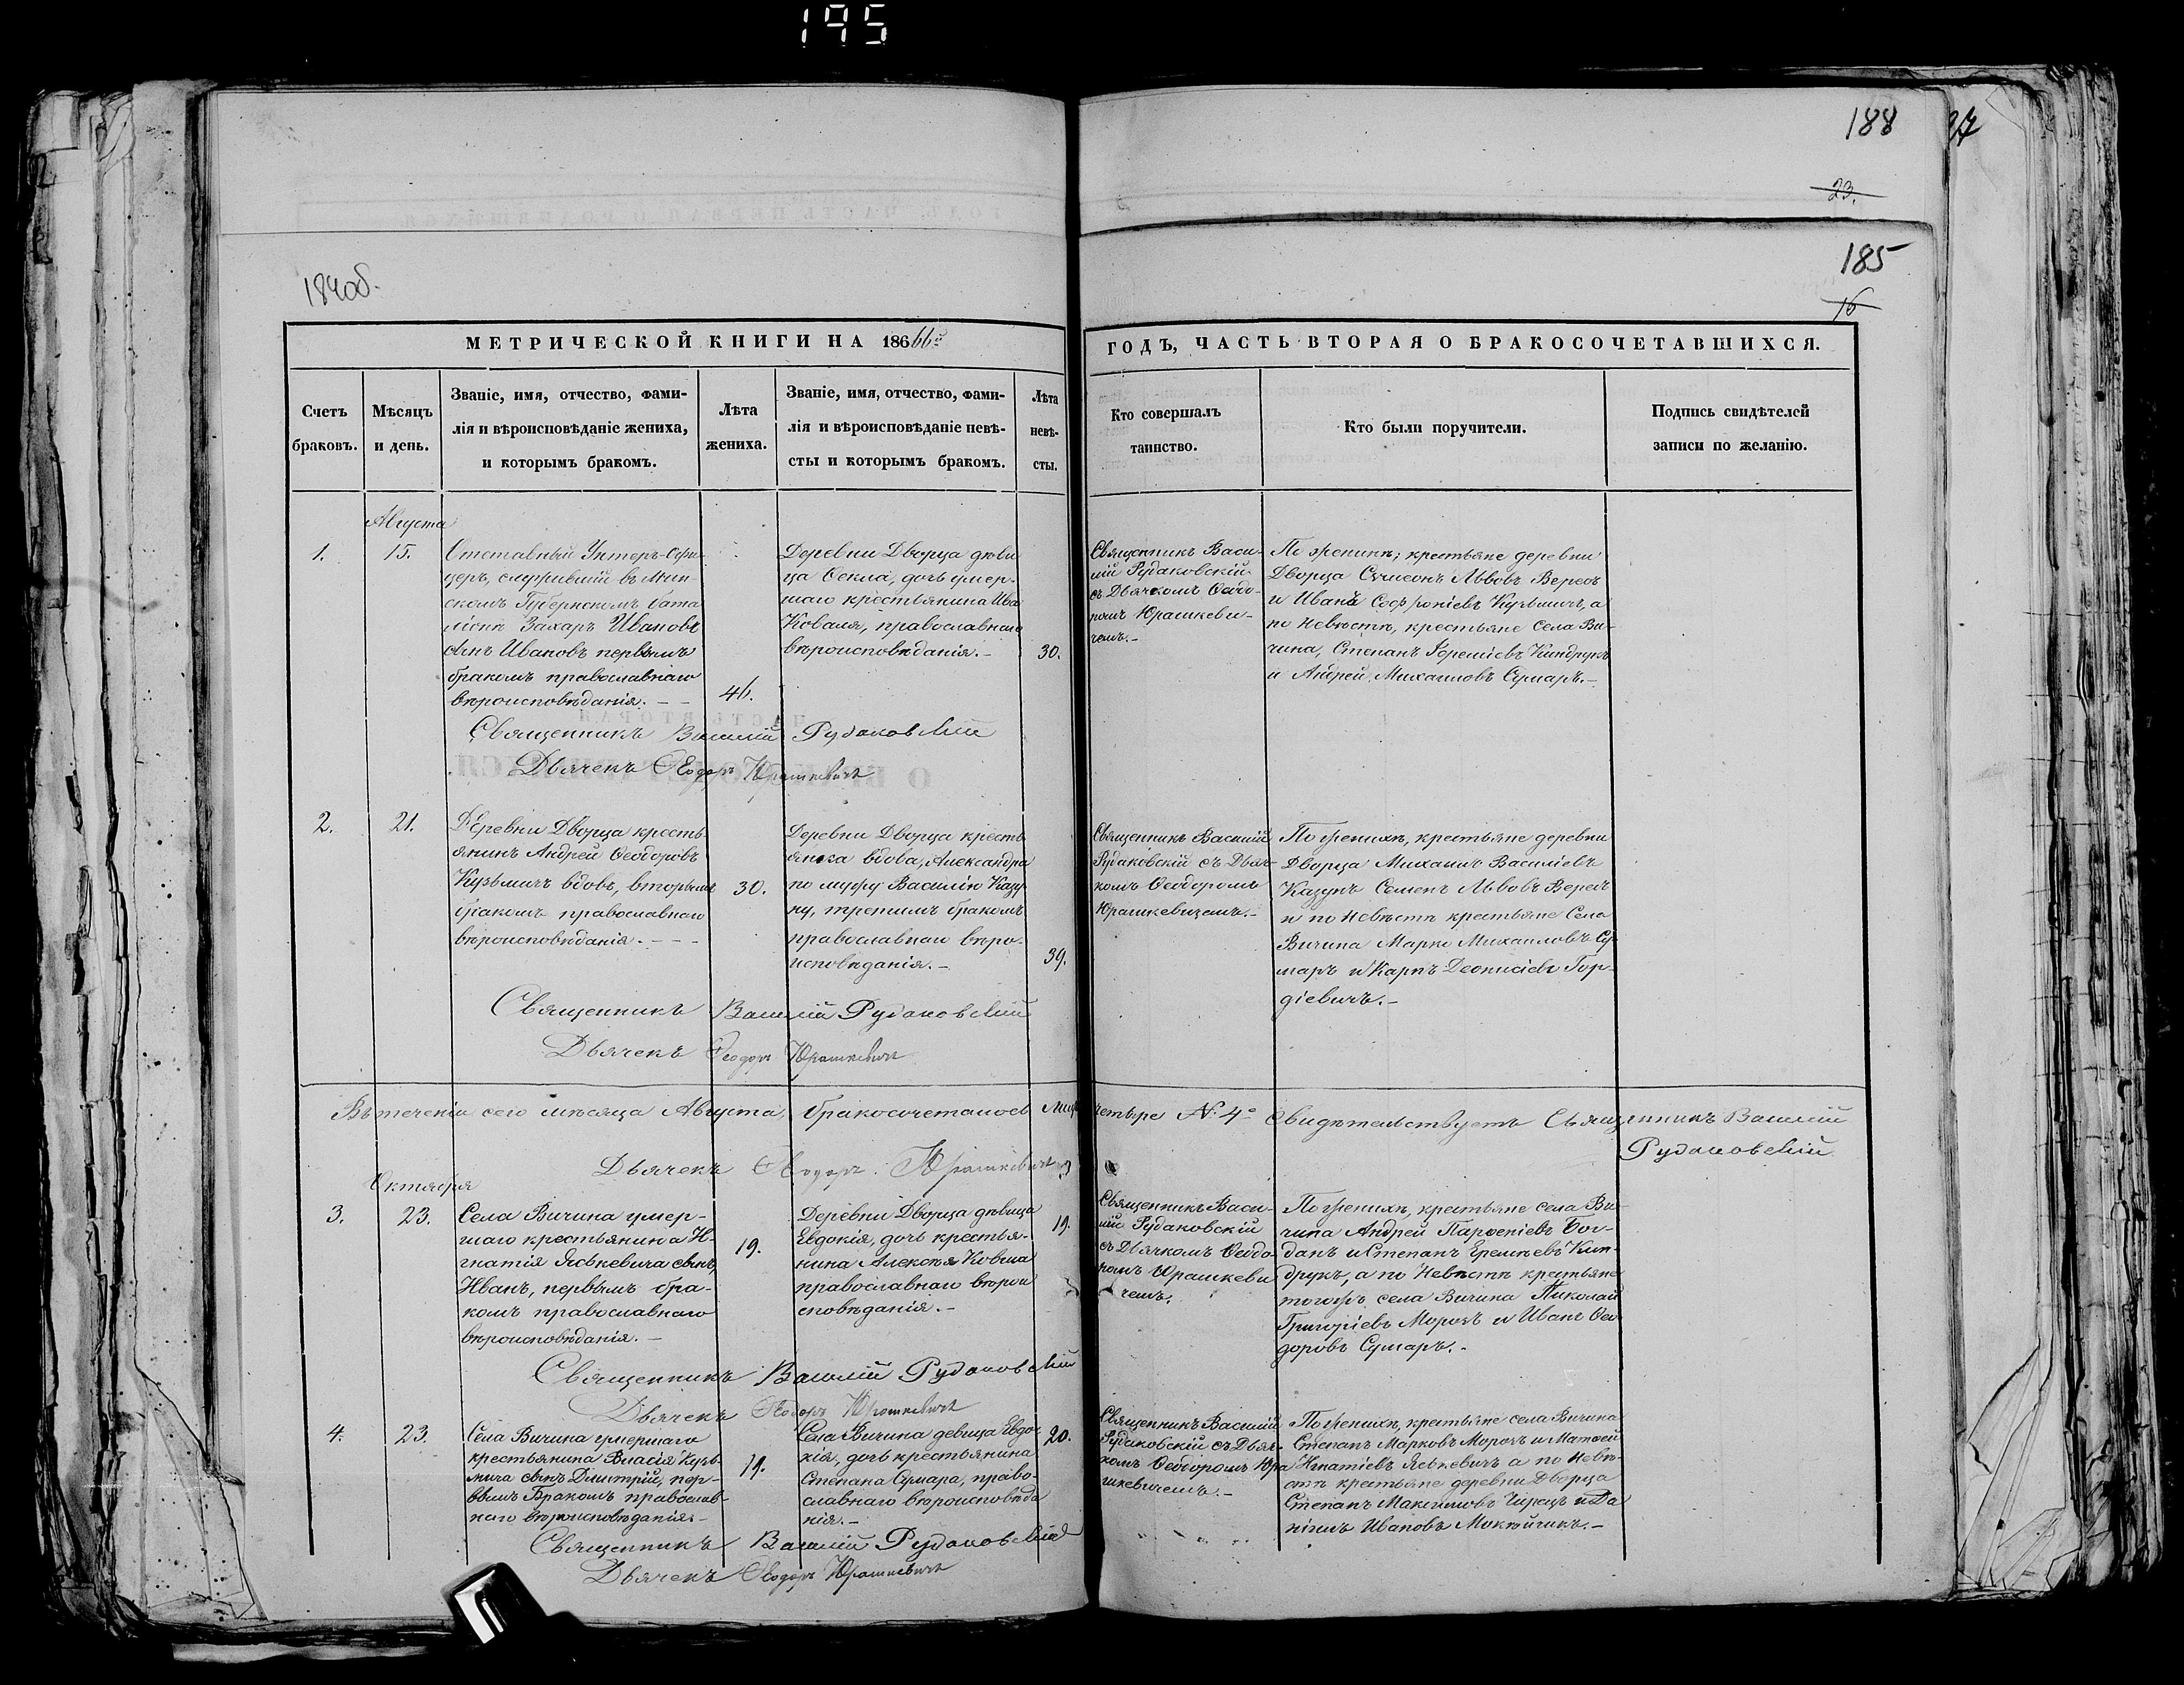 195
188
23.
185
16
184об.
МЕТРИЧЕСКОЙ КНИГИ НА 18666го
ГОДЪ, ЧАСТЬ ВТОРАЯ О БРАКОСОЧЕТАВШИХСЯ.
Счетъ
браковъ.
Мѣсяцъ
и день.
Званіе, имя, отчество, фами-
лія и вѣроисповѣданіе жениха,
и которымъ бракомъ.
Лѣта
жениха.
Званіе, имя, отчество, фами-
лія и вѣроисповѣданіе невѣ-
сты и которымъ бракомъ.
Лѣта
невѣ-
сты.
Кто совершалъ
таинство.
Кто были поручители.
Подпись свидѣтелей
записи по желанію.
Августа
1.
15.
Отставный Унтеръ-Офи-
церъ, служившій въ Мин-
скомъ Губернскомъ бата
ліонѣ Захаръ Ивановъ
сынъ Ивановъ первымъ
бракомъ православнаго
вѣроисповѣданія. - -
46.
Деревни Дворца дѣви
ца Ѳекла, дочь умер-
шаго крестьянина Ива
Коваля, православнаго
вѣроисповѣданія. -
30.
Священникъ Васи-
лій Рудаковскій
съ Дьячкомъ Ѳеодо-
ромъ Юрашкеви-
чемъ. -
По женихѣ; крестьяне деревни
Дворца Сѵмеонъ Львовъ Вересъ
и Иванъ Софроніевъ Кузьмичъ, а
по невѣстѣ, крестьяне Села Ви-
чина, Степанъ Іереміевъ Киндрукъ
и Андрей Михаиловъ Сумаръ. -
Священникъ Василій Рудаковскій
Дьячекъ Ѳеодоръ Юрашкевичъ
2.
21.
Деревни Дворца кресть
янинъ Андрей Ѳеодоровъ
Кузьмичъ вдовъ, вторымъ
бракомъ православнаго
вѣроисповѣданія. - - -
30.
Деревни Дворца кресть
янка вдова, Александра
по мужу Василію Казу
ну, третимъ бракомъ
православнаго вѣро-
исповѣданія. -
39.
Священникъ Василій
Рудаковскій съ Дьяч-
комъ Ѳеодоромъ
Юрашкевичемъ. -
По женихѣ, крестьяне деревни
Дворца Михаилъ Василіевъ
Казунъ Семенъ Львовъ Вересъ
и по невѣстѣ крестьяне Села
Вичина Марко Михаиловъ Су-
маръ и Карпъ Деонисіевъ Гор-
діевичъ. -
Священникъ Василій Рудаковскій
Дьячекъ Ѳеодоръ Юрашкевичъ
Въ теченіи сего мѣсяца Августа, бракосочеталось четыре №. 4о Свидѣтельствуетъ Священникъ Василій
Рудаковскій
Дьячекъ Ѳеодоръ Юрашкевичъ
Октября
3.
23.
Села Вичина умер-
шаго крестьянина И-
гнатія Яськевича сынъ,
Иванъ, первымъ бра-
комъ православнаго
вѣроисповѣданія. -
19.
Деревни Дворца дѣвица
Евдокія, дочь крестья-
нина Алексѣя Ковша
православнаго вѣрои
сповѣданія. -
19.
Священникъ Васи-
лій Рудаковскій
съ Дьячкомъ Ѳеодо-
ромъ Юрашкеви
чемъ.
По женихѣ, крестьяне села Ви-
чина Андрей Парѳеніевъ Бог-
данъ и Степанъ Еремѣевъ Кин-
друкъ, а по невѣстѣ крестьяне
тогожъ села Вичина Николай
Григоріевъ Морозъ и Иванъ Ѳео
доровъ Сумаръ. -
Священникъ Василій Рудаковскій
Дьячекъ Ѳеодоръ Юрашкевичъ
4.
23.
Села Вичина умершаго
крестьянина Власія Кузь-
мича сынъ Дмитрій, пер-
вымъ Бракомъ православ-
наго вѣроисповѣданія -
19.
Села Вичина девица Евдо-
кія, дочь крестьянина
Степана Сумара, право-
славнаго вѣроисповѣда
нія. -
20.
Священникъ Василій
Рудаковскій съ Дьяч-
комъ Ѳеодоромъ Юра
шкевичемъ. -
По женихѣ, крестьяне села Вичина
Степанъ Марковъ Морозъ и Матѳей
Игнатіевъ Яськевичъ а по невѣ-
стѣ крестьяне деревни Дворца
Степанъ Максимовъ и Да
ніилъ Ивановъ Мокейчикъ. -
Священникъ Василій Рудаковскій
Дьячекъ Ѳеодоръ Юрашкевичъ